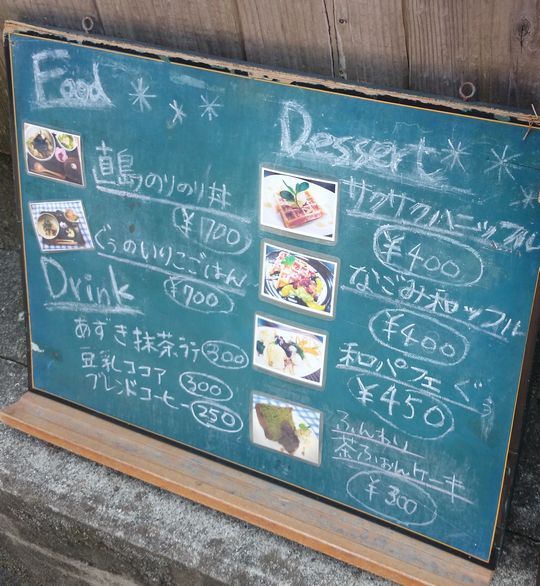 Food
直島のりのり丼
¥700
ぐぅのいりこごはん
¥700
Drink
あずき抹茶ラテ 300
豆乳ココア 300
ブレンドコーヒー 250
Dessert
サクサクハーッフル
¥400
なごみ和ッフル
¥400
和パフェぐぅ
¥450
ふんわり
茶ふぉんケーキ
¥300